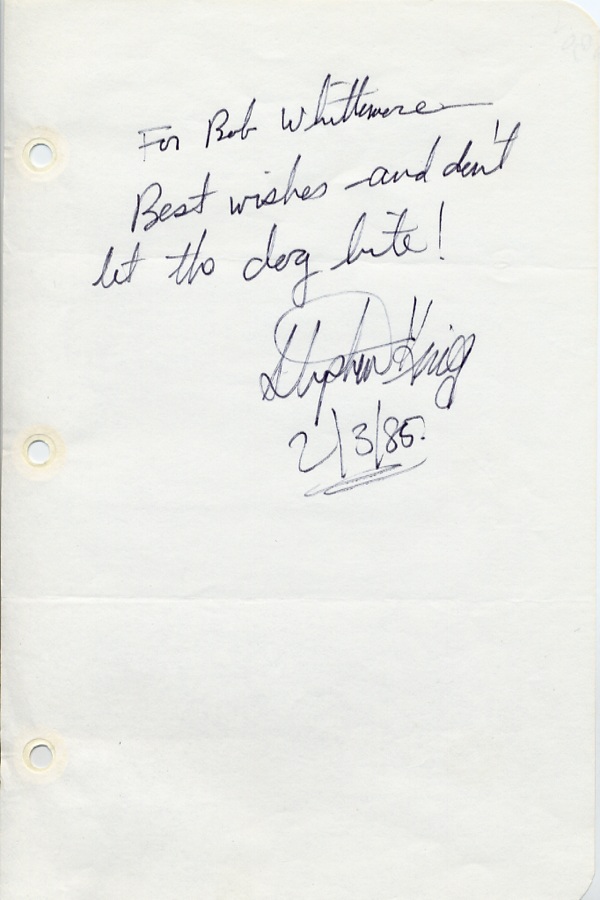 For Bob Whittemore—
Best wishes – and don't
let the dog bite!
Stephen King
2/3/85.